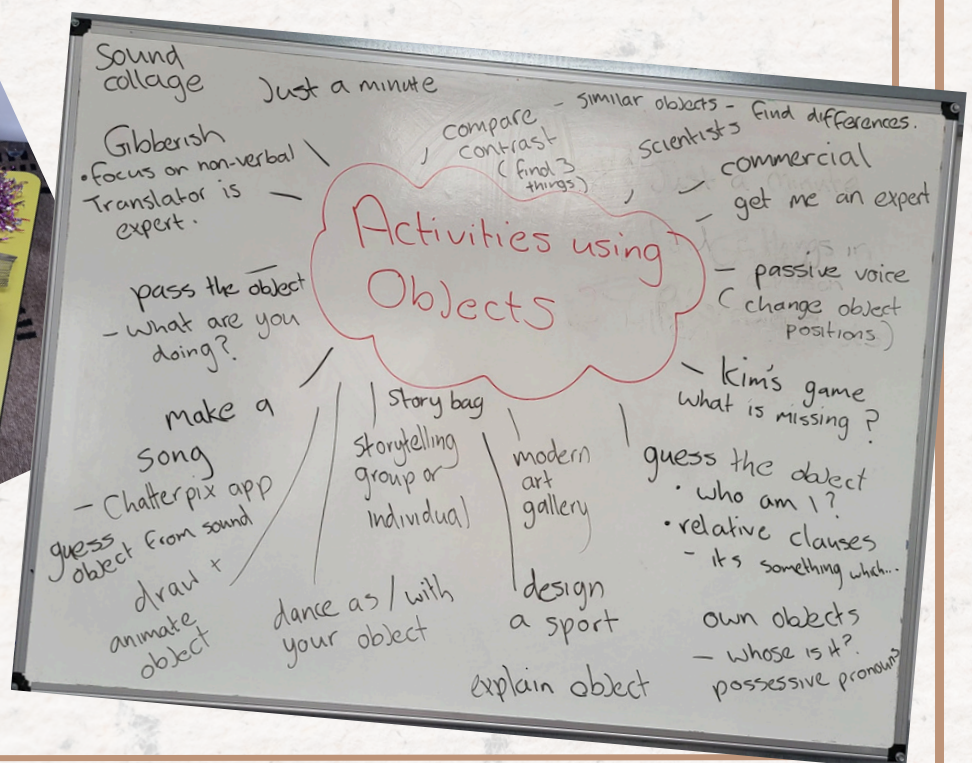 Sound
collage
Just a minute
Gibberish
• focus on non-verbal
Translator is
expert.
compare
contrast
(find 3
things)
- similar objects - find differences.
scientists
commercial
get me an expert
Activities using
Objects
pass the object
- What are you
doing?
- passive voice
(change object
positions)
make a
song
- Chatterpix app
guess
object from sound
draw +
animate
object
Story bag
storytelling
group or
individual
modern
art
gallery
- Kim's game
what is missing?
guess the object
• who am I?
• relative clauses
- it's something which...
dance as / with
your object
design
a sport
explain object
own objects
- whose is it?
possessive pronouns